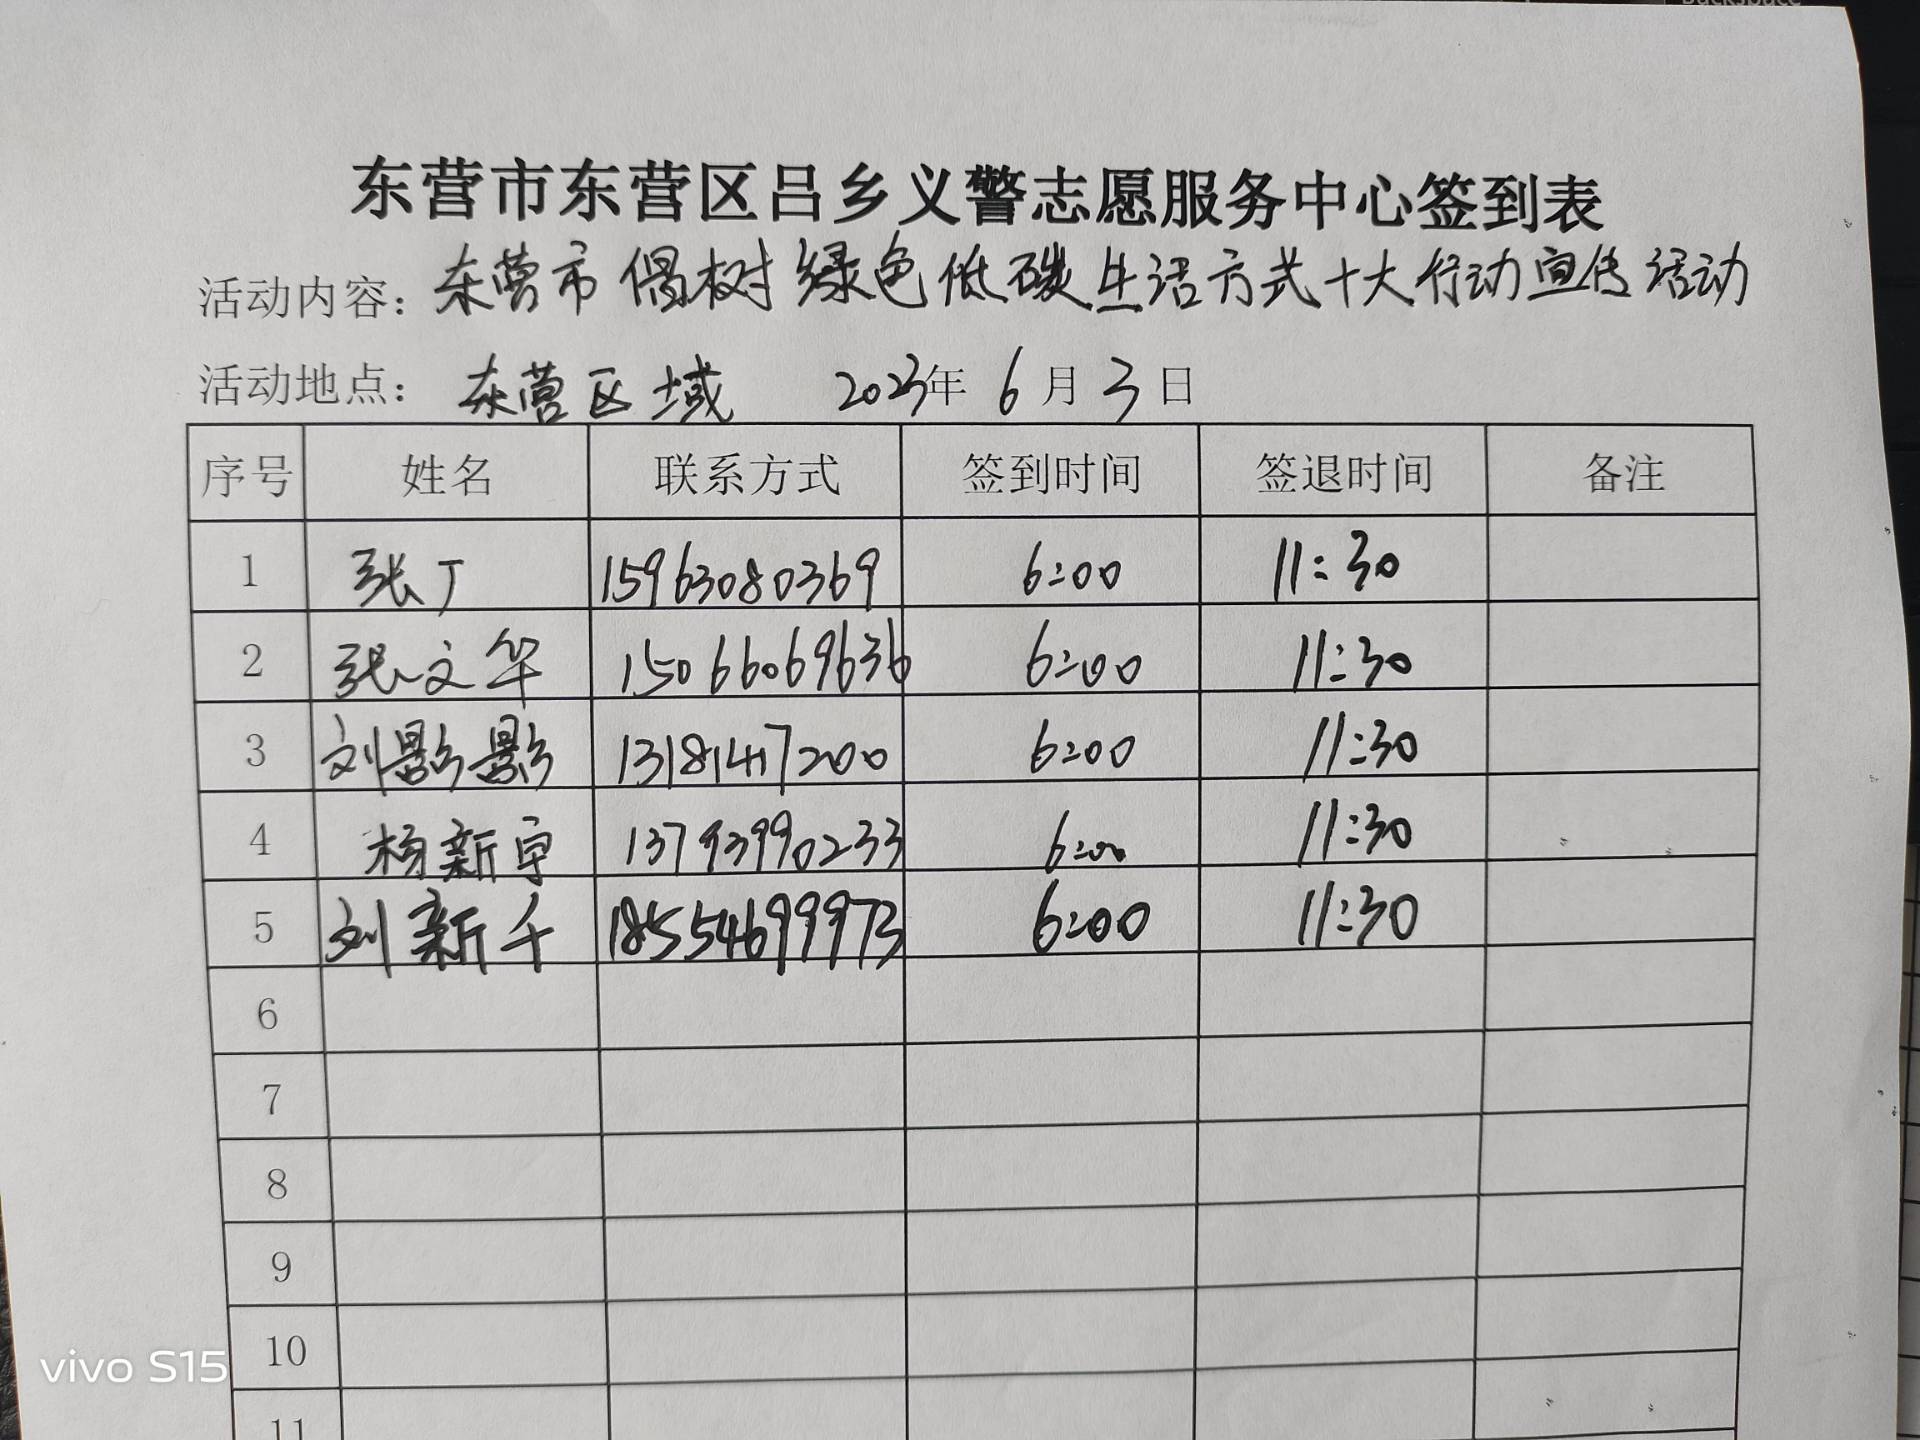 东营市东营区吕乡义警志愿服务中心签到表
活动内容：东营市倡树绿色低碳生活方式十大行动宣传活动
活动地点：东营区域 2023年6月3日
序号 姓名 联系方式 签到时间 签退时间 备注
1 张丁 15963080369 6:00 11:30
2 张文华 15066069636 6:00 11:30
3 刘影影 13181417200 6:00 11:30
4 杨新宇 13793990233 6:00 11:30
5 刘新千 18554699973 6:00 11:30
6
7
8
9
10
11
vivo S15